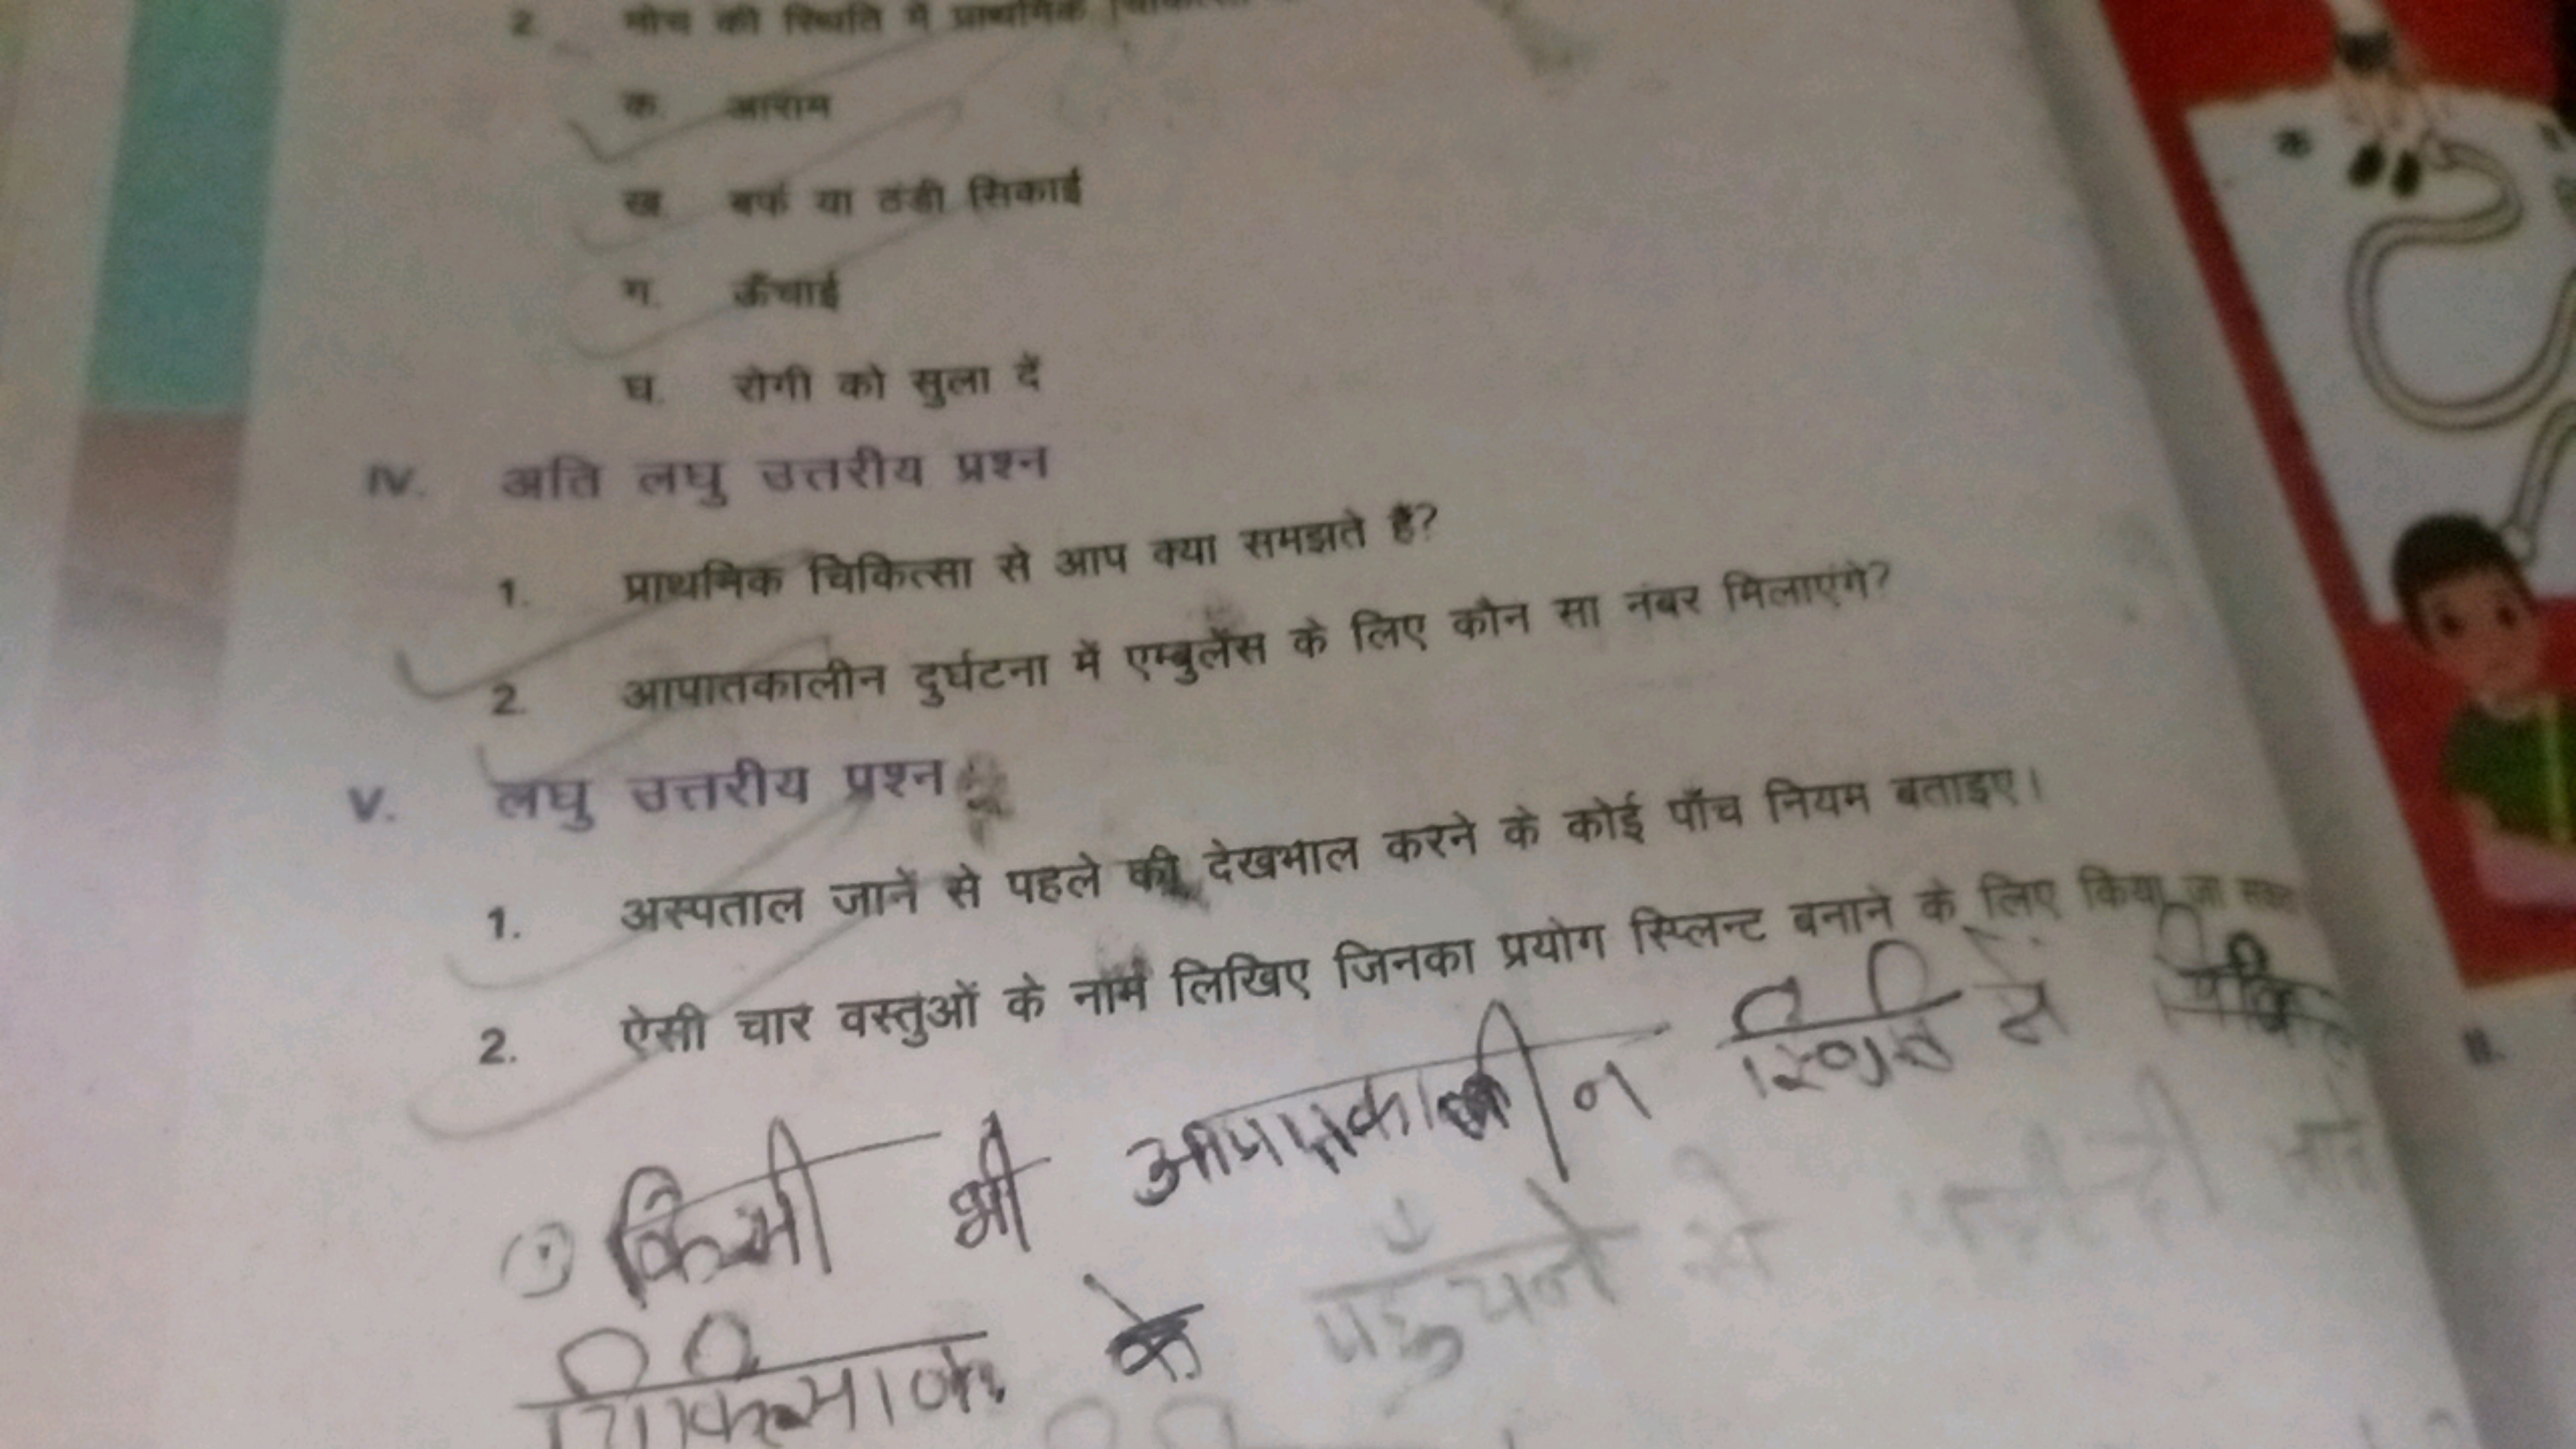 2. मोच की स्थिति में प्राथमिक
क. आराम
ख. बर्फ या ठंडी सिकाई
ग. ऊँचाई
घ. रोगी को सुला दें
IV. अति लघु उत्तरीय प्रश्न
1. प्राथमिक चिकित्सा से आप क्या समझते हैं?
2. आपातकालीन दुर्घटना में एम्बुलेंस के लिए कौन सा नंबर मिलाएंगे?
V. लघु उत्तरीय प्रश्न
1. अस्पताल जाने से पहले की देखभाल करने के कोई पाँच नियम बताइए।
2. ऐसी चार वस्तुओं के नाम लिखिए जिनका प्रयोग स्प्लिन्ट बनाने के लिए किया जा
किसी भी स्थिति में
के पहुँचने से